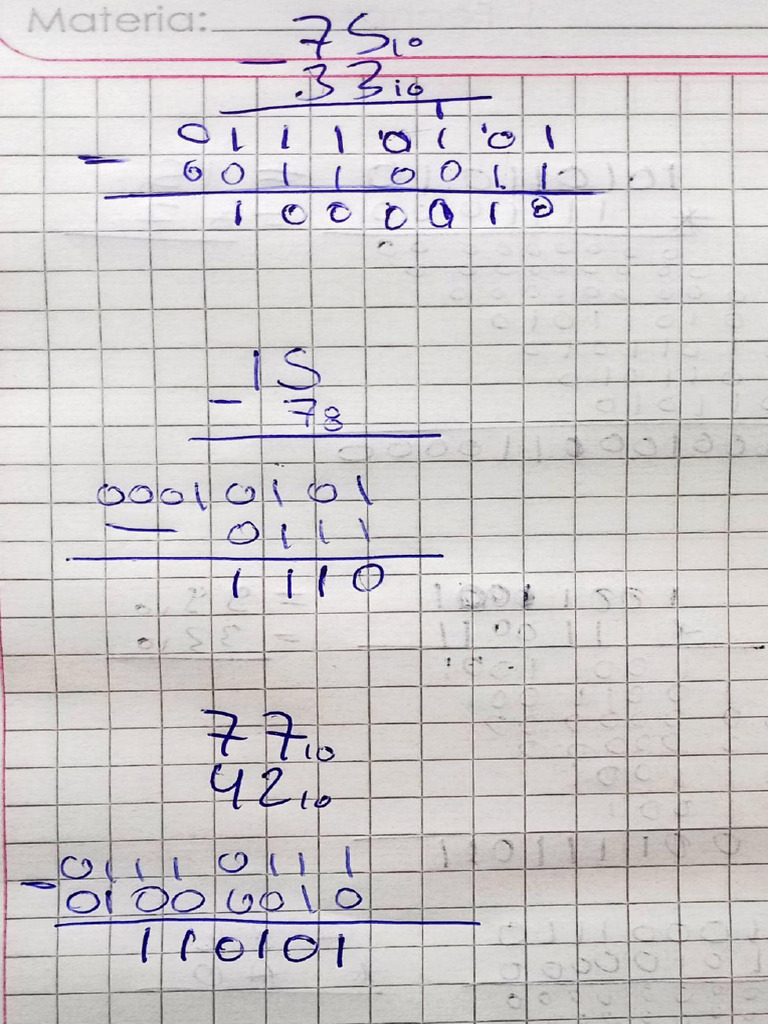 Materia:
- 75₁₀
33₁₀
0 1 1 1 0 1 0 1
- 0 0 1 1 0 0 1 1
1 0 0 0 0 1 0
15
- 7₈
0 0 0 1 0 1 0 1
- 0 1 1 1
1 1 1 0
77₁₀
42₁₀
0 1 1 1 0 1 1 1
- 0 1 0 0 0 0 1 0
1 1 0 1 0 1